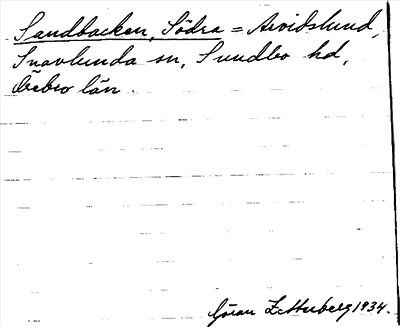 Sandbacken, Södra = Arvidslund,
Snavlunda sn, Sundbo hd,
Örebro län.
Göran Zetterberg 1934.